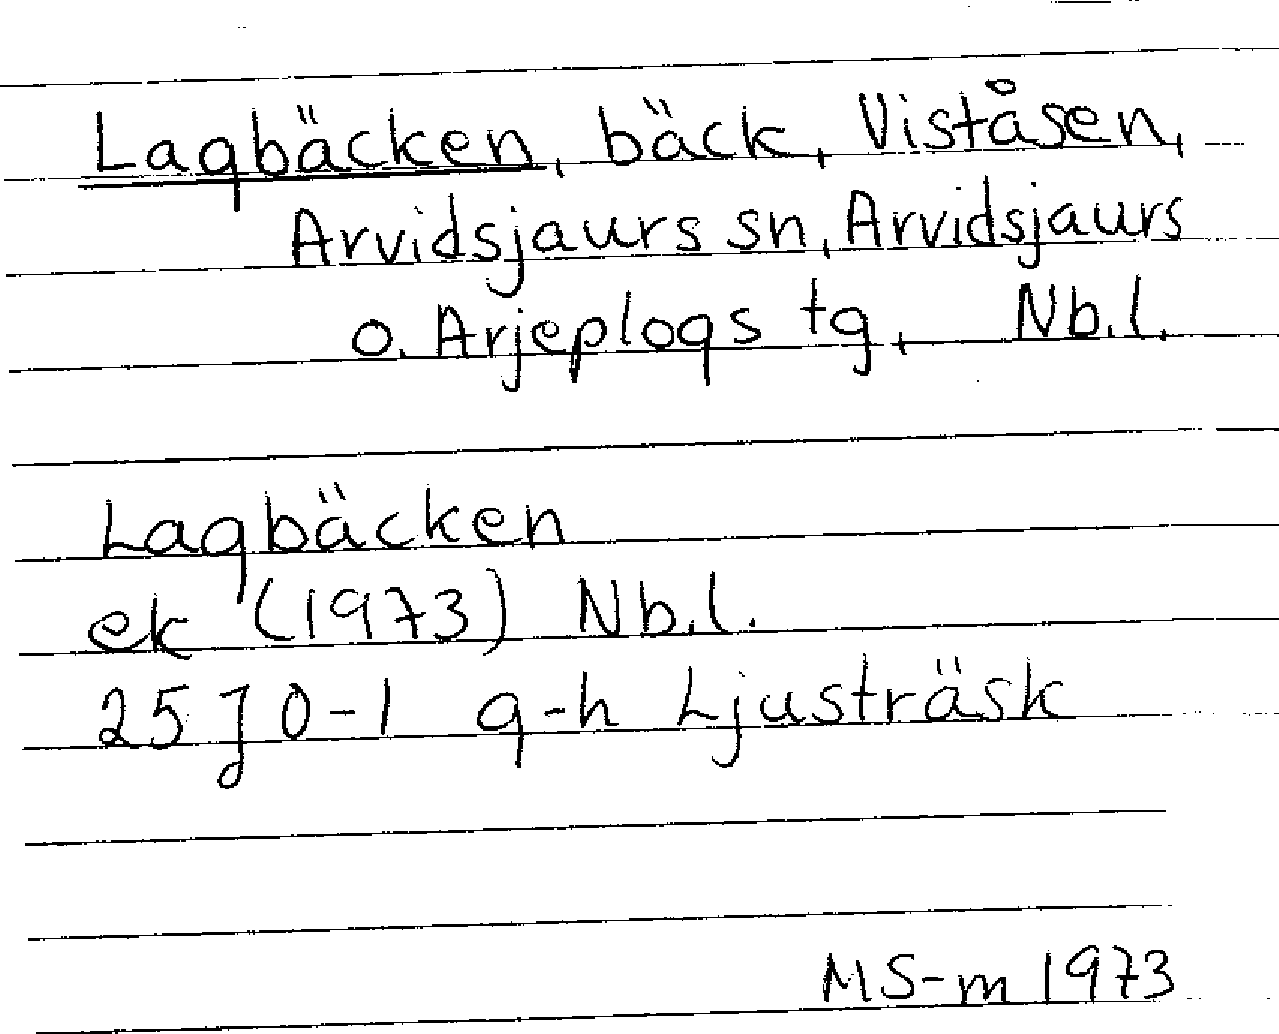 Lagbäcken, bäck, Viståsen,
Arvidsjaurs sn, Arvidsjaurs
o. Arjeplogs tg, Nb.l.
Lagbäcken
ek (1973) Nb.l.
25 J 0-1 g-h Ljusträsk
MS-m 1973